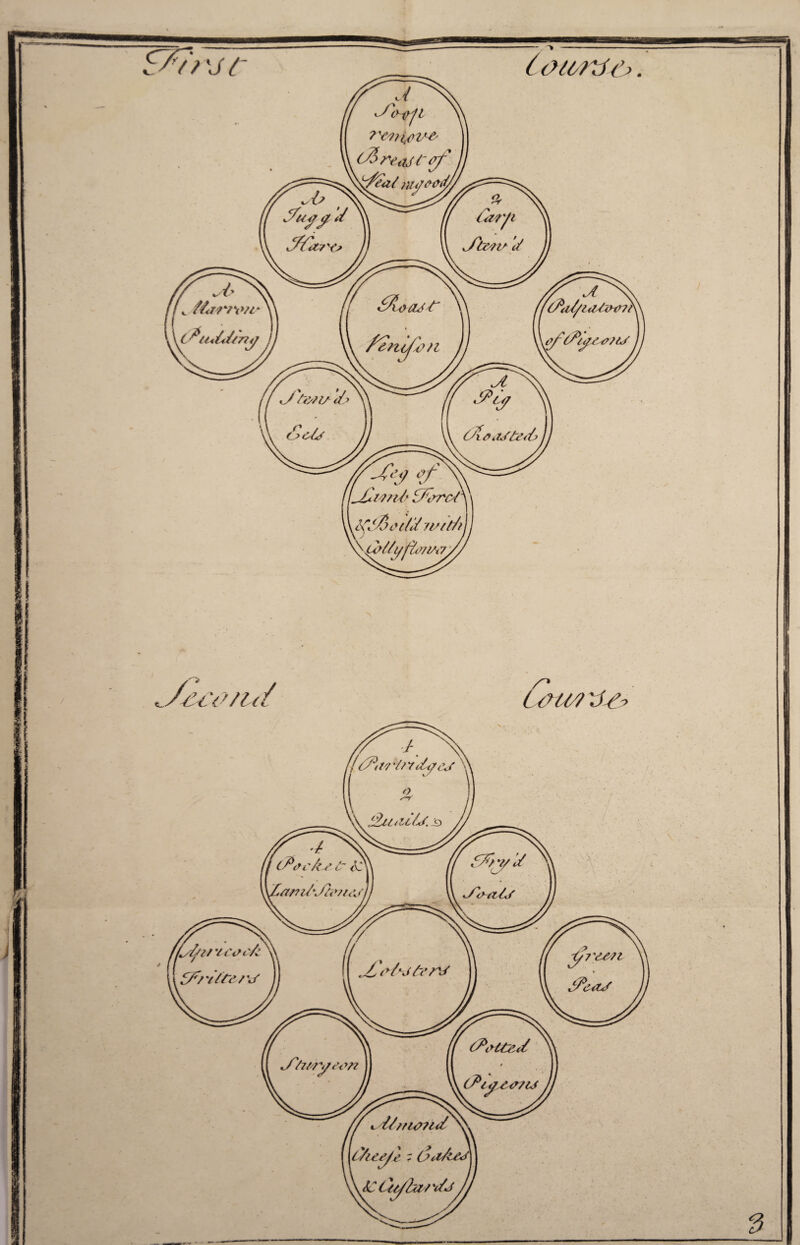 First Course.
A
Soop
remove
Breast of
Veal ragood
A
Jugg'd
Hare
2
Carp
Stew'd
A
Marrow
Pudding
Roast
Venison
A
Palpatoon
of Pigeons
Stew'd
Eels
A
Pig
Roasted
Leg of
Lamb Forc'd
& Boild with
Collyflower
Second Course
4
Partridges
2
Quails.
4
Pocket &
Lamb Stones
Fry'd
Soals
Apricock
Fritters
Lobsters
Green
Peas
Sturgeon
Potted
Pigeons
Almond
Cheese : Cakes
& Custards
3